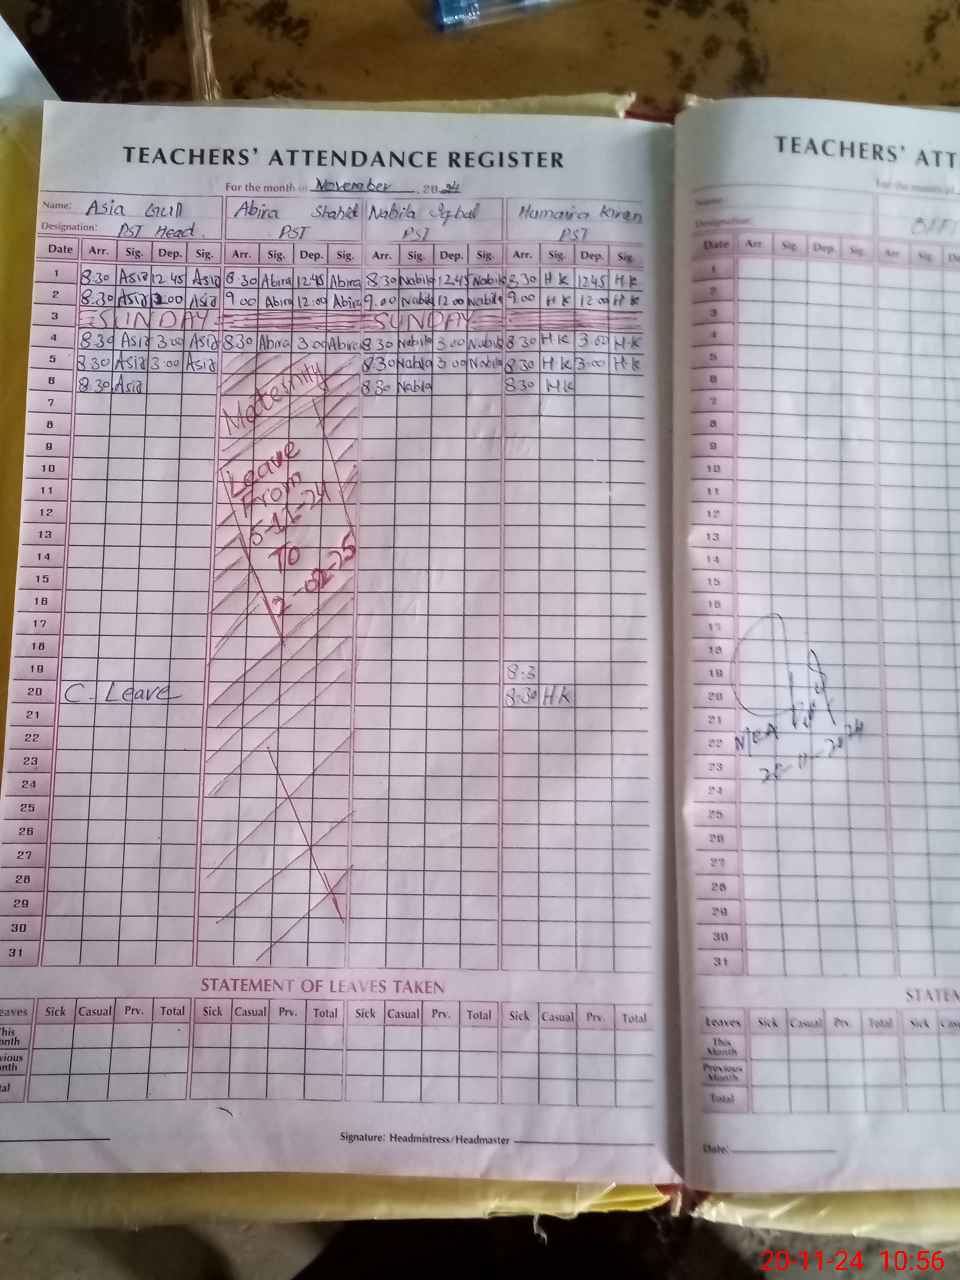 TEACHERS' ATTENDANCE REGISTER
For the month of November, 2024
Name: Asia Gull Abira Shahid Nabila Iqbal Humaira Kiren
Designation: PST Head. PST PST PST
Date Arr. Sig. Dep. Sig. Arr. Sig. Dep. Sig. Arr. Sig. Dep. Sig. Arr. Sig. Dep. Sig.
1 8:30 Asia 12 45 Asia 8 30 Abira 12 45 Abira 8.30 Nabila 12.45 Nabila 8.30 H K 12 45 H K
2 8:30 Asia 12:00 Asia 9 00 Abira 12:00 Abira 9.00 Nabila 12 00 Nabila 9.00 H K 12 00 H K
3 SUNDAY SUNDAY
4 8:30 Asia 3:00 Asia 8:30 Abira 3:00 Abira 8 30 Nabila 3:00 Nabila 8 30 H K 3:00 H-K
5 8:30 Asia 3:00 Asia 8:30 Nabila 3 00 Nabila 8 30 H K 3:00 H K
6 8:30 Asia 8:30 Nabila 8:30 HK
Maternity
Leave
From
5-11-24
To
2-02-25
7
8
9
10
11
12
13
14
15
16
17
18
19 8:3
20 C. Leave 8:30 HK
21
22
23
24
25
26
27
28
29
30
31
STATEMENT OF LEAVES TAKEN
eaves Sick Casual Prv. Total Sick Casual Prv. Total Sick Casual Prv. Total Sick Casual Prv. Total
This
onth
vious
nth
tal
Signature: Headmistress/Headmaster
TEACHERS' ATT
For the month of
Name:
Designation:
Date Arr. Sig. Dep. Sig. Arr. Sig. De
1
2
3
4
5
6
7
8
9
10
11
12
13
14
15
16
17
18
19
20
21
22
23
24
25
26
27
28
29
30
31
20-11-2024
STATEM
Leaves Sick Casual Prv. Total Sick Cas
This
Month
Previous
Month
Total
Date:
20-11-24 10:56